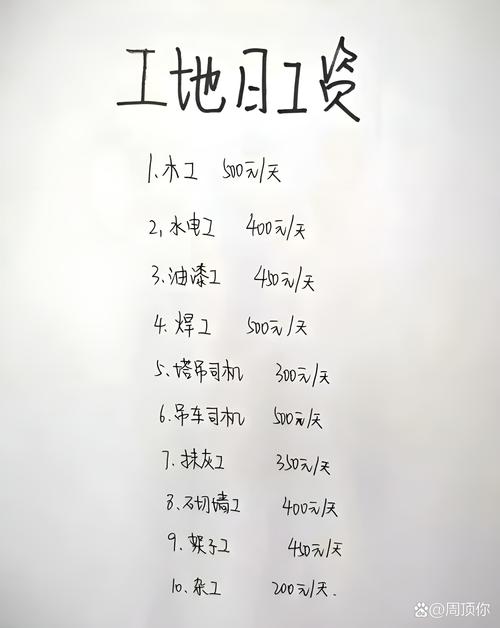 工地日工资
1、木工 500元/天
2、水电工 400元/天
3、油漆工 450元/天
4、焊工 500元/天
5、塔吊司机 300元/天
6、吊车司机 500元/天
7、抹灰工 350元/天
8、石切墙工 400元/天
9、架子工 450元/天
10、杂工 200元/天.
百度 @周顶你